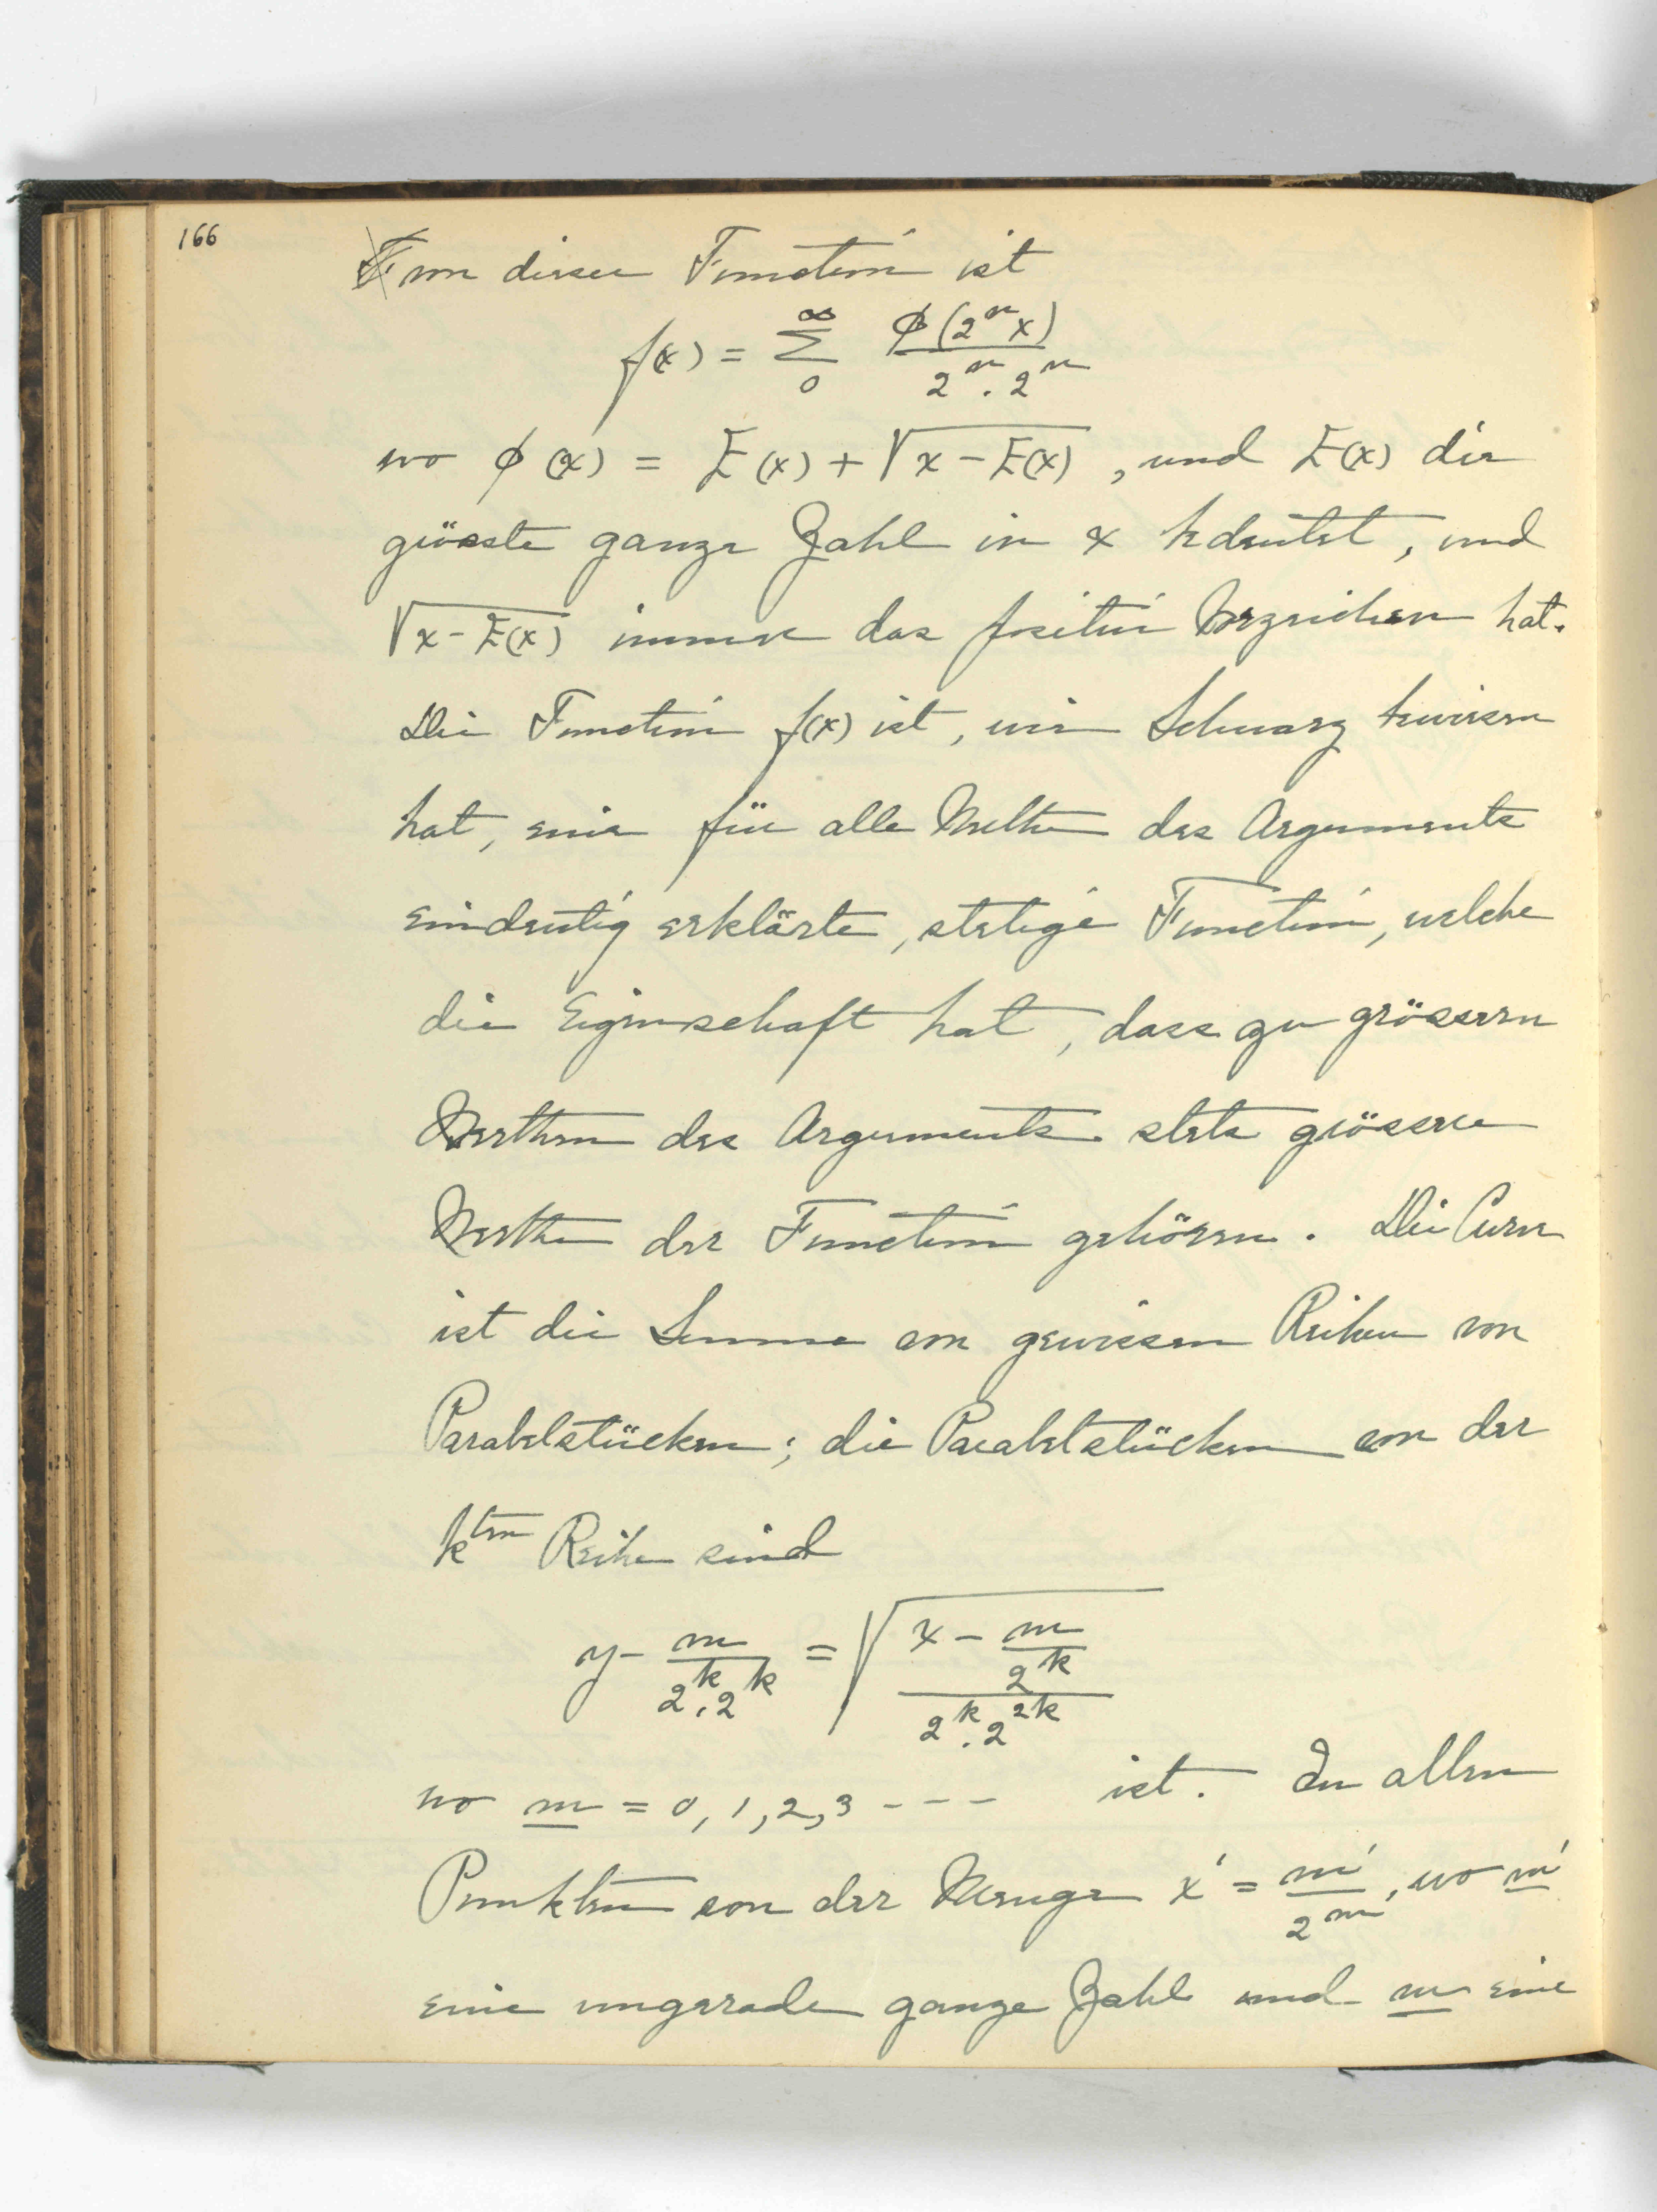 166
von dieser Function ist
f(x) = ∞ Σ 0 φ(2^n x) / 2^n . 2^n
wo φ(x) = E(x) + √(x – E(x)) , und E(x) die
grösste ganze Zahl in x bedeutet, und
√(x – E(x)) immer das positive Vorzeichen hat.
Die Function f(x) ist, wie Schwarz bewiesen
hat, eine für alle Werthe des Arguments
eindeutig erklärte, stetige Function, welche
die Eigenschaft hat, dass zu grösseren
Werthen des Arguments stets grössere
Werthe der Function gehören. Die Curve
ist die Summe von gewissen Reihen von
Parabelstücken; die Parabelstücken von der
k^ten Reihe sind
y – m / 2^k . 2^k = √((x – m / 2^k) / 2^k . 2^2k)
wo m = 0, 1, 2, 3 – – – ist. In allen
Punkten von der Menge x' = m' / 2^n, wo m'
eine ungerade ganze Zahl und n eine